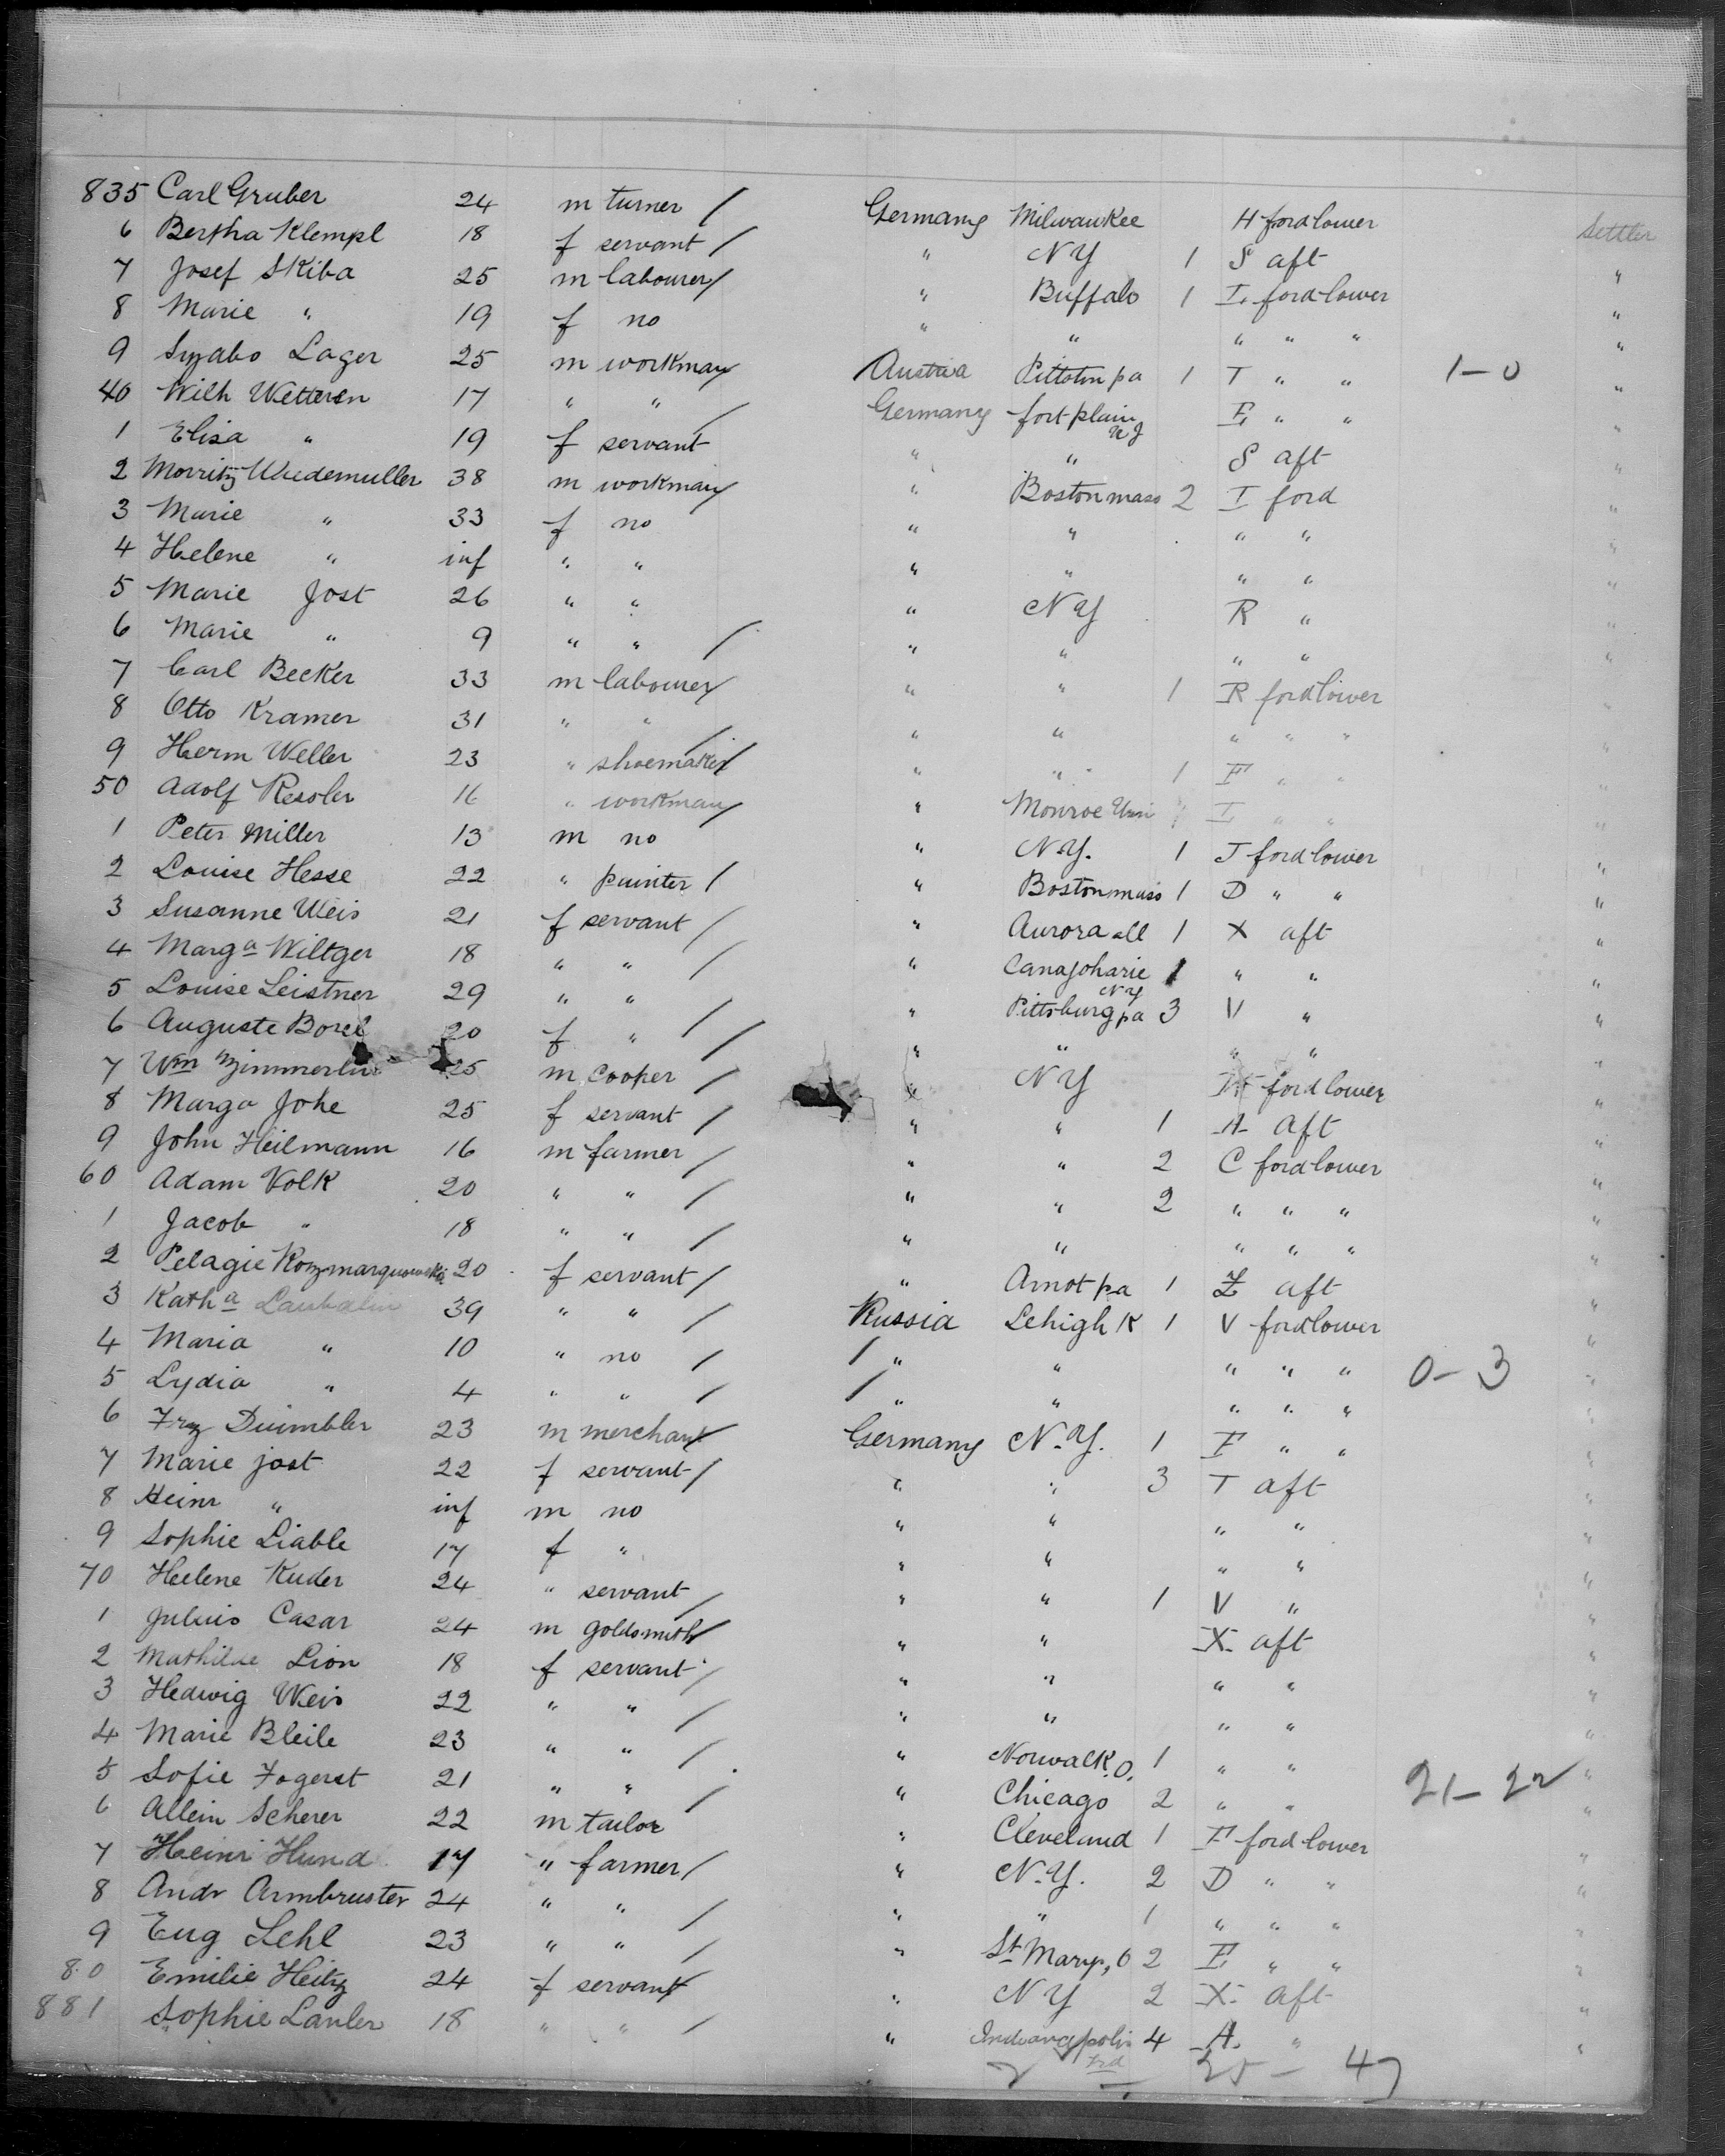 835 Carl Gruber 24 m turner / Germany Milwaukee H ford lower Settler
6 Bertha Klempl 18 f servant / " NY 1 S aft "
7 Josef Skiba 25 m labourer / " Buffalo 1 L ford lower "
8 Marie " 19 f no " " " " " "
9 Lager 25 m workman / Austria Pittston pa 1 T " " 1–0 "
40 Wilh Wetteren 17 " " / Germany fort plain NJ E " " "
1 Elisa " 19 f servant " " S aft "
2 Morritz Wiedemuller 38 m workman / " Boston mass 2 I ford "
3 Marie " 33 f no " " " " "
4 Helene " inf " " " " " " "
5 Marie Jost 26 " " " NY R " "
6 Marie " 9 " " / " " " " "
7 Carl Becker 33 m labourer / " " 1 R ford lower "
8 Otto Kramer 31 " " / " " " " " "
9 Herm Weller 23 " shoemaker / " " 1 F " " "
50 Adolf Ressler 16 " workman / " Monroe " " "
1 Peter Miller 13 m no " N.Y. 1 J ford lower "
2 Louise Hesse 22 " painter / " Boston mass 1 D " " "
3 Susanne Weis 21 f servant / " Aurora 1 X aft "
4 Marga Wiltger 18 " " / " Canajoharie NY 1 " " "
5 Louise Leistner 29 " " / " Pittsburg pa 3 V " "
6 Auguste Borel 20 f " / " " " " "
7 Wm Zimmerlin 25 m Cooper / " NY ford lower "
8 Marga Johe 25 f servant / " " 1 A aft "
9 John Heilmann 16 m farmer / " " 2 C ford lower "
60 Adam Volk 20 " " / " " 2 " " " "
1 Jacob " 18 " " / " " " " " "
2 Pelagie 20 f servant / " Arnot pa 1 Z aft "
3 Katha 39 " " / Russia Lehigh K 1 V ford lower "
4 Maria " 10 " no / / " " " " " 0–3 "
5 Lydia " 4 " " / / " " " " " "
6 Frz Duimbler 23 m merchant / Germany N.Y. 1 F " " "
7 Marie Jost 22 f servant / " " 3 T aft "
8 Heinr " inf m no " " " " "
9 Sophie Liable 17 f " " " " " "
70 Helene Kuder 24 " servant / " " 1 V " "
1 Julius Casar 24 m goldsmith / " " X aft "
2 Mathilde Lion 18 f servant / " " " " "
3 Hedwig Weis 22 " " / " " " " "
4 Marie Bleile 23 " " / " Norwalk. O. 1 " " "
5 Sofie Fogerst 21 " " / " Chicago 2 " " 21–22 "
6 Allein Scherer 22 m tailor " Cleveland 1 F ford lower "
7 Heinr Hund 17 " farmer / " N.Y. 2 D " " "
8 Andr Armbruster 24 " " / " " 1 " " " "
9 Eug Lehl 23 " " / " St Marys, O 2 E " " "
80 Emilie Heitz 24 f servant / " NY 2 X aft "
881 Sophie Lauler 18 " " / " Indianapolis Ind 4 A " "
25 – 47